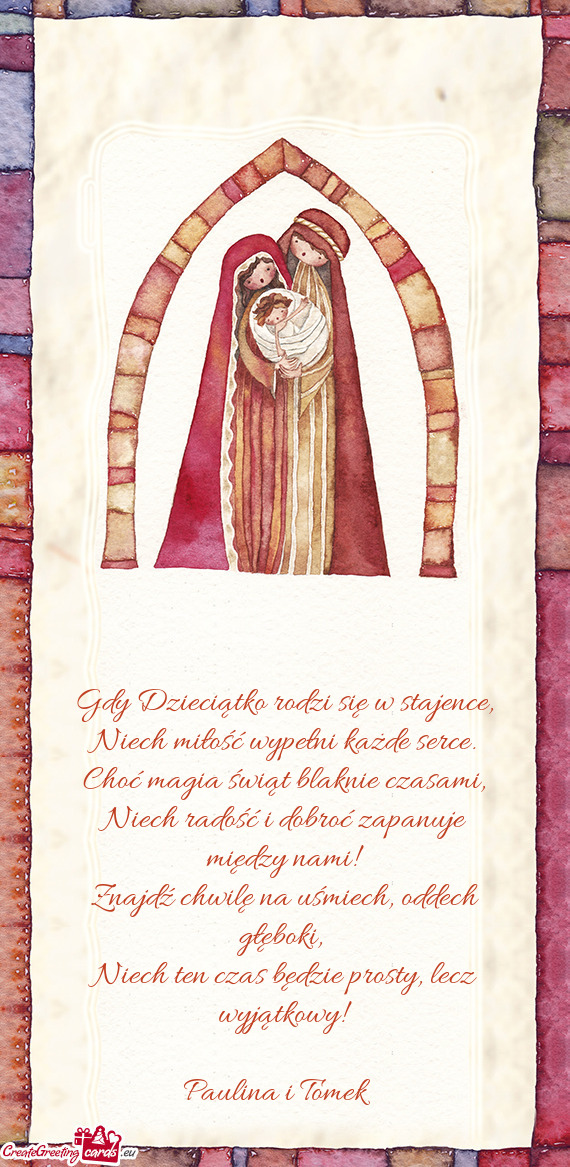 Gdy Dzieciątko rodzi się w stajence,
Niech miłość wypełni każde serce.
Choć magia świąt blaknie czasami,
Niech radość i dobroć zapanuje
między nami!
Znajdź chwilę na uśmiech, oddech
głęboki,
Niech ten czas będzie prosty, lecz
wyjątkowy!
Paulina i Tomek
CreateGreeting cards .eu